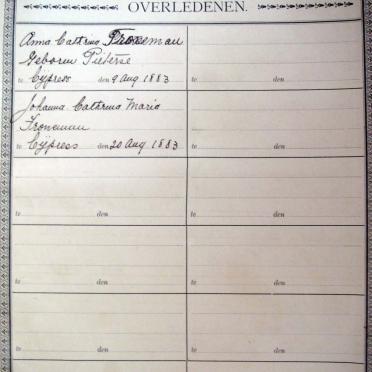 OVERLEDENEN.
Anna Cathrina Froneman
Geboren Pieterse
te Cypress den 9 Aug 1883
te den
Johanna Cathrina Maria
Froneman
te Cypress den 20 Aug 1883
te den
te den
te den
te den
te den
te den
te den